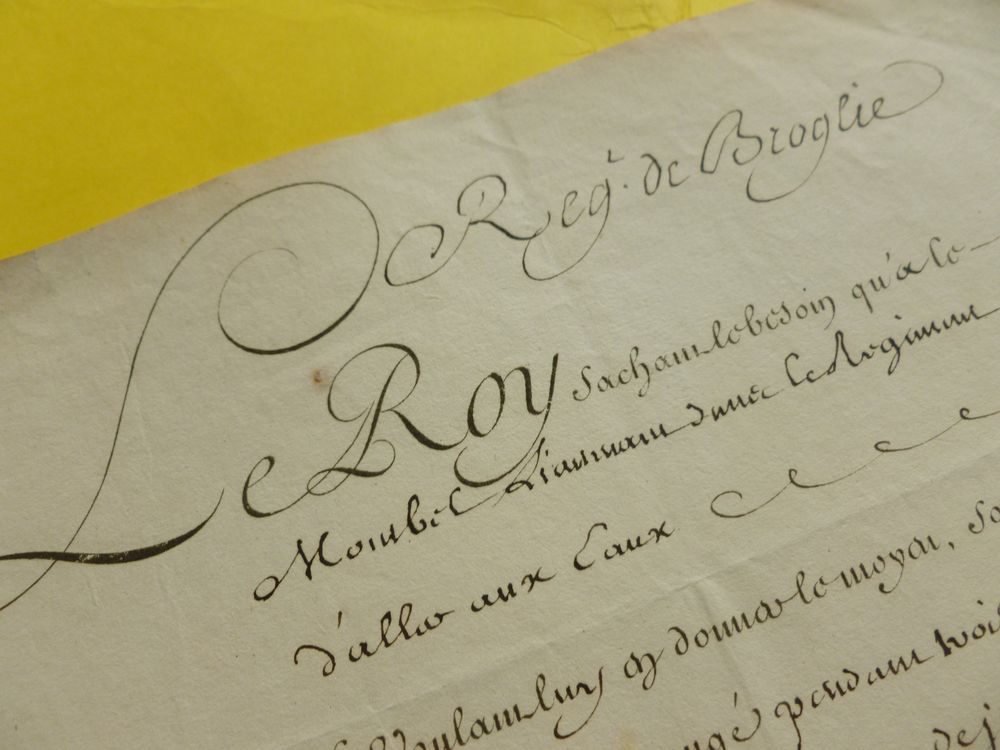 Reg.t de Broglie
Le Roy sachant le besoin qu'a le
Montbel Lieutenant dans le Regiment
d'aller aux Eaux
Voulant luy en donner le moyen,
congé pendant trois
de